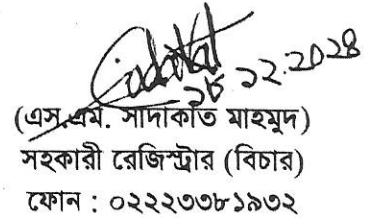 ১৮.১২.২০২৪
(এস.এম. সাদাকাত মাহমুদ)
সহকারী রেজিস্ট্রার (বিচার)
ফোন : ০২২২৩৩৮১৯৩২